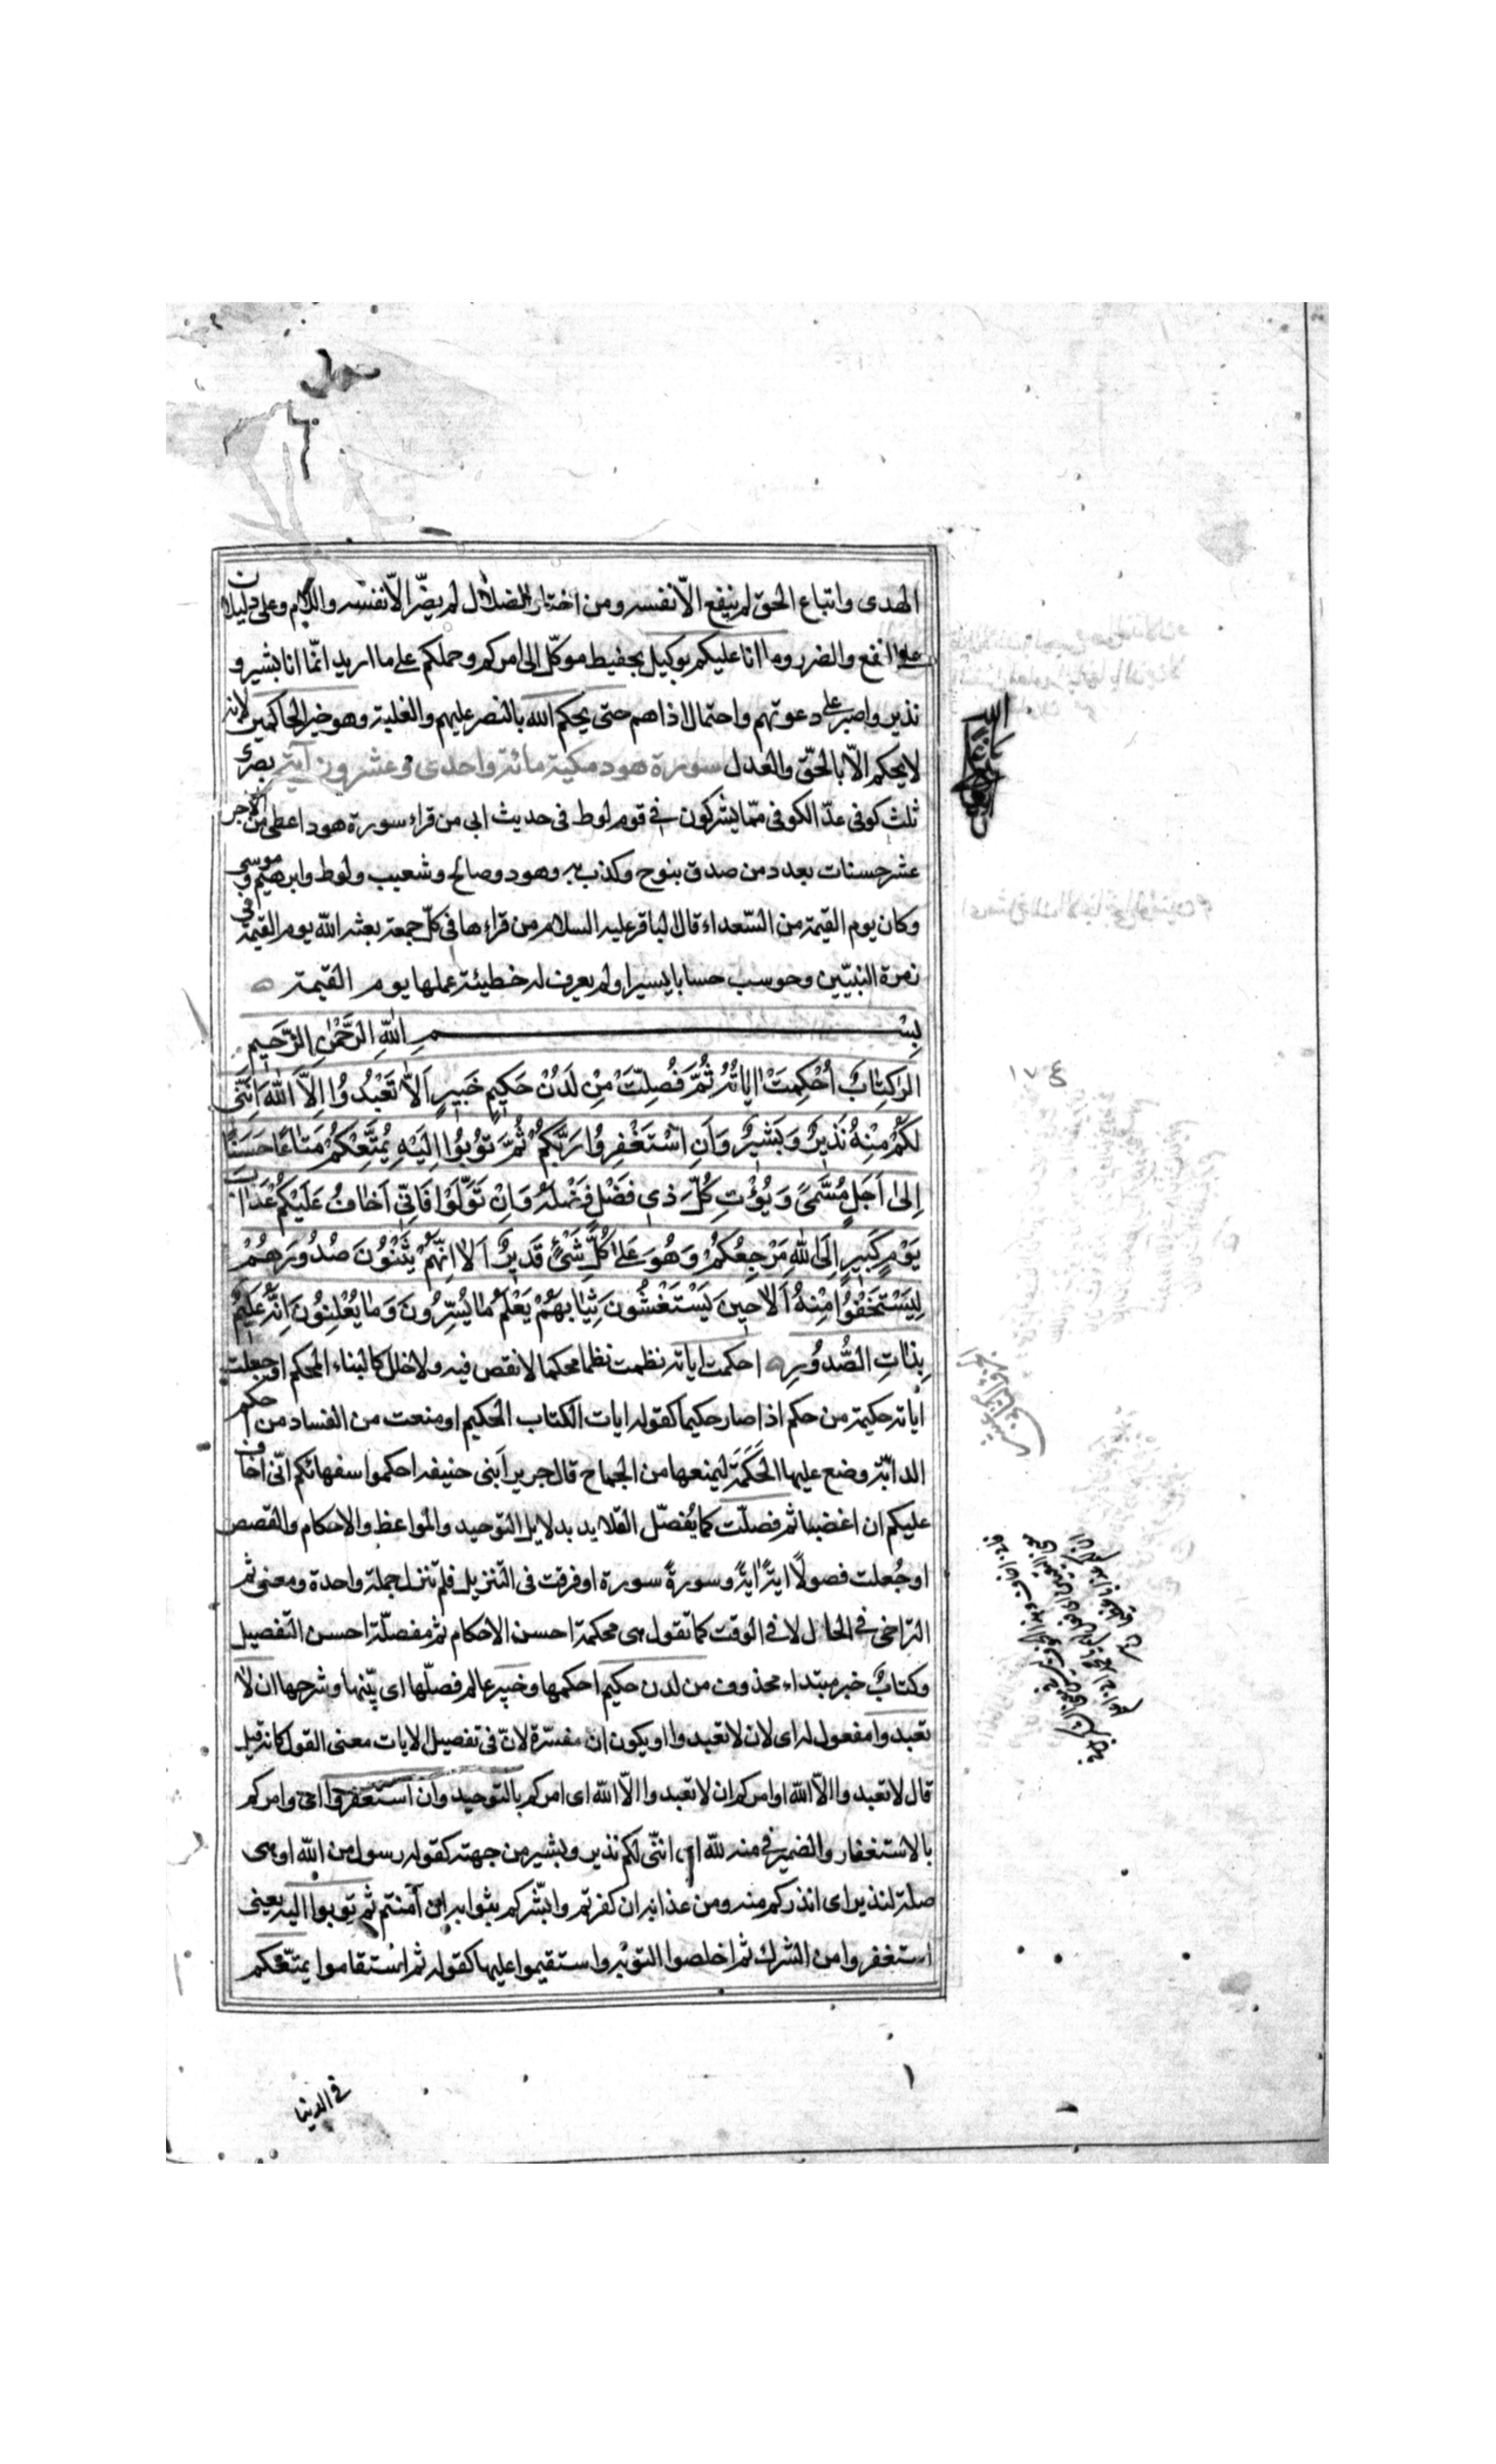 الهدى واتباع الحق لم ينفع الّا نفسه ومن اختار الضلال لم يضرّ الّا نفسه واللام وعلى دليلان
على النفع والضرر وما انا عليكم بوكيل بحفيط موكّل الى امركم وحملكم على ما اريد انّما انا بشير و
نذير واصبر على دعوتهم واحتمال اذاهم حتى يحكم الله بالنصر عليهم والغلبة وهو خير الحاكمين لانه
لا يحكم الّا بالحقّ والعدل سورة هود مكية مائة واحدى وعشرون آية بصرى
ثلث كوفى عدّ الكوفى ممّا يشركون فى قوم لوط فى حديث ابى من قراء سورة هود اعطى من الاجر
عشر حسنات بعدد من صدق بنوح وكذب به وهود وصالح وشعيب ولوط وابرهيم وموسى
وكان يوم القيمة من السّعداء قال الباقر عليه السلام من قراءها فى كلّ جمعة بعثه الله يوم القيمة فى
زمرة النبيّين وحوسب حسابا يسيرا ولم يعرف له خطيئة عملها يوم القيمة
بِسْمِ اللهِ الرَّحْمٰنِ الرَّحِيمِ
الر كِتٰابٌ اُحْكِمَتْ اٰيٰاتُهُ ثُمَّ فُصِلَّتْ مِنْ لَدُنْ حَكِيمٍ خَبِيرٍ اَلاّٰ تَعْبُدُوا اِلاَّ اللهَ اِنَّنِى
لَكُمْ مِنْهُ نَذِيرٌ وَبَشِيرٌ وَاَنِ اسْتَغْفِرُوا رَبَّكُمْ ثُمَّ تُوبُوا اِلَيْهِ يُمَتِّعْكُمْ مَتٰاعًا حَسَنًا
اِلىٰ اَجَلٍ مُسَّمىً وَيُؤْتِ كُلَّ ذِى فَضْلٍ فَضْلَهُ وَاِنْ تَوَلَّوْا فَاِنّى اَخٰافُ عَلَيْكُمْ عَذٰابَ
يَوْمٍ كَبِيرٍ اِلَى اللهِ مَرْجِعُكُمْ وَهُوَ عَلىٰ كُلِّ شَىْءٍ قَدِيرٌ اَلاٰ اِنَّهُمْ يَثْنُونَ صُدُورَهُمْ
لِيَسْتَخْفُوا مِنْهُ اَلاٰ حِينَ يَسْتَغْشُونَ ثِيٰابَهُمْ يَعْلَمُ مٰا يُسِرُّونَ وَمٰا يُعْلِنُونَ اِنَّهُ عَلِيمٌ
بِذٰاتِ الصُّدُورِ احكمت اياته نظمت نظما محكما لا نقص فيه ولا خلل كالبناء المحكم او جعلت
اياته حكيمة من حكم اذا صار حكيما كقوله ايات الكتاب الحكيم او منعت من الفساد من احكم
الدابّة وضع عليها الحَكَمَةَ ليمنعها من الجماح قال جرير اَبنى حنيفه احكموا سفهائكم انّى اخاف
عليكم ان اغضبا ثم فصلّت كما يُفصّل القلايد بدلايل التوحيد والمواعظ والاحكام والقصص
او جُعلت فصولًا ايةً ايةً وسورةً سورة او فرقت فى التنزيل فلم تنزل جملة واحدة ومعنى ثم
التراخى فى الحال لا فى الوقت كما تقول هى محكمة احسن الاحكام ثم مفصلّة احسن التفصيل
وكتابٌ خبر مبتداء محذوف من لدن حكيم احكمها وخبير عالم فصلّها اى بيّنها وشرحها ان لا
تعبدوا مفعول له اى لان لا تعبدوا او يكون ان مفسّرة لانّ فى تفصيل الايات معنى القول كانه قيل
قال لا تعبدوا الّا الله او امركم ان لا تعبدوا الّا الله اى امركم بالتوحيد وان استغفروا اى وامركم
بالاستغفار والضمير فى منه للّه اى انّنى لكم نذير وبشير من جهته كقوله رسول من اللّه او هى
صلة لنذير اى انذركم منه ومن عذابه ان كفرتم وابّشركم بثوابه ان آمنتم ثم توبوا اليه يعنى
استغفروا من الشرك ثم اخلصوا التوبة واستقيموا عليها كقوله ثم استقاموا يمتّعكم
١٧٤
فى الدنيا
١